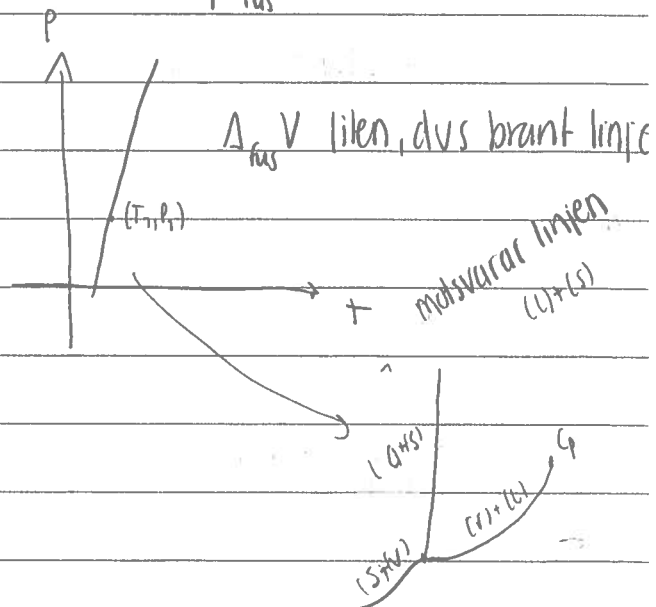 fus
P
Δfus V liten, dvs brant linje
(T₁, P₁)
T
motsvarar linjen
(l)+(s)
(l)+(s)
Cp
(v)+(l)
(s)+(v)